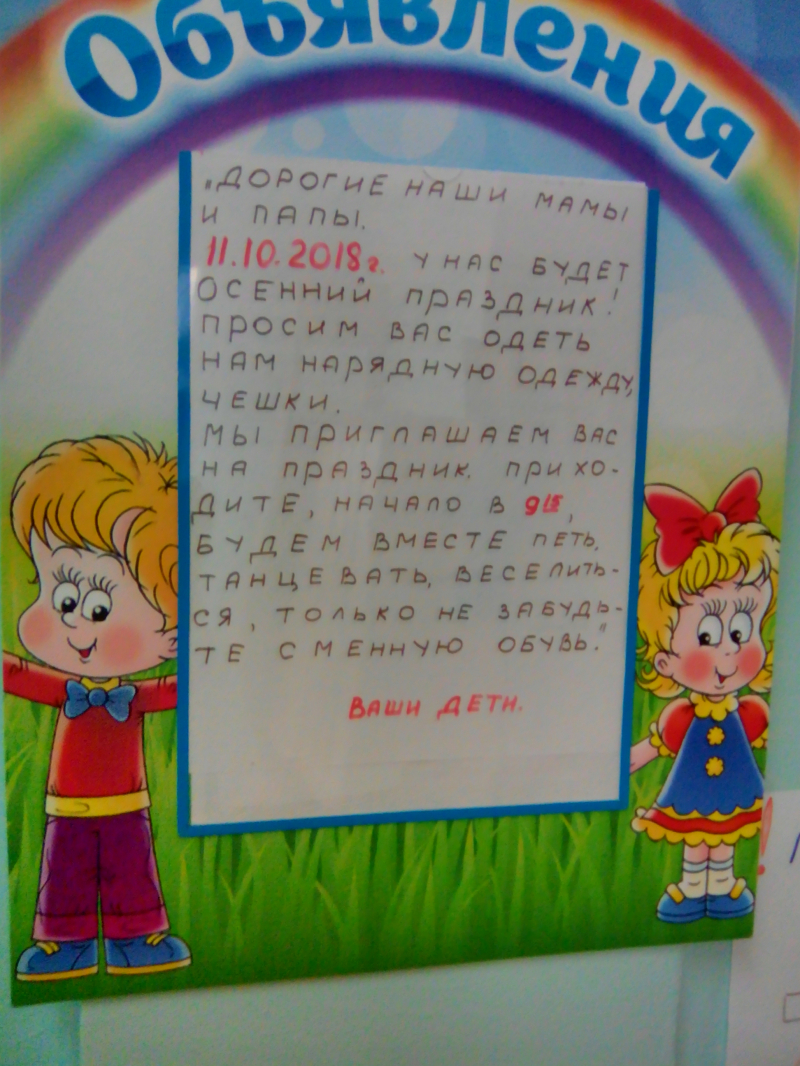 Объявления
„ДОРОГИЕ НАШИ МАМЫ
И ПАПЫ.
11.10.2018г. У НАС БУДЕТ
ОСЕННИЙ ПРАЗДНИК!
ПРОСИМ ВАС ОДЕТЬ
НАМ НАРЯДНУЮ ОДЕЖДУ,
ЧЕШКИ.
МЫ ПРИГЛАШАЕМ ВАС
НА ПРАЗДНИК. ПРИХО-
ДИТЕ, НАЧАЛО В 9 15,
БУДЕМ ВМЕСТЕ ПЕТЬ,
ТАНЦЕВАТЬ, ВЕСЕЛИТЬ-
СЯ, ТОЛЬКО НЕ ЗАБУДЬ-
ТЕ СМЕННУЮ ОБУВЬ."
ВАШИ ДЕТИ.